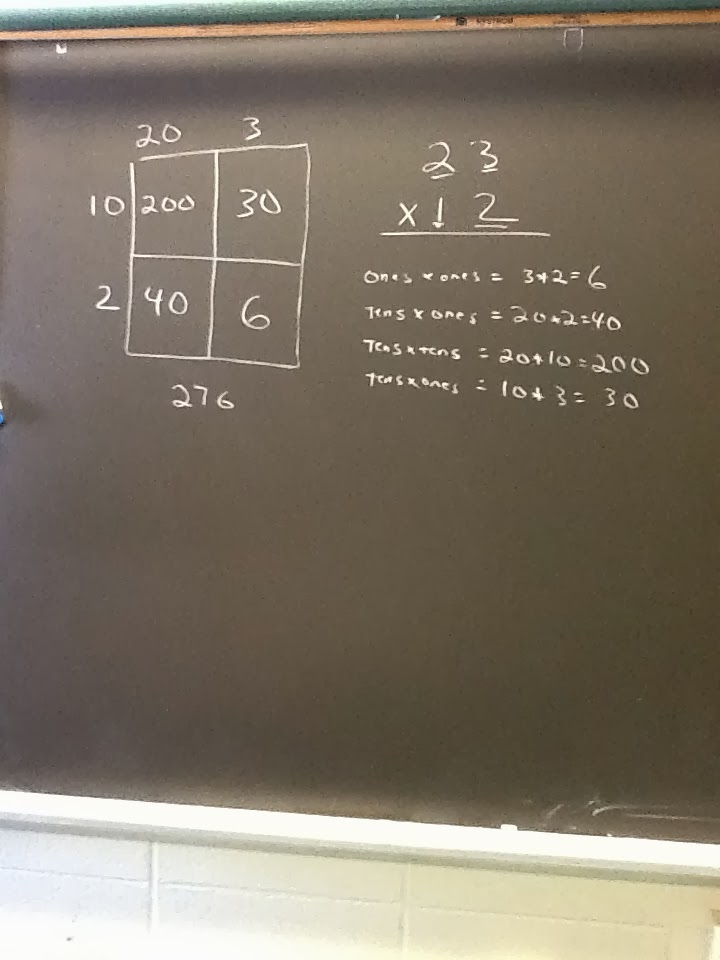 20 3
10 200 30
2 40 6
276
23
x 12
ones x ones = 3*2=6
Tens x ones = 20*2=40
Tens x tens = 20*10=200
tens x ones = 10*3= 30